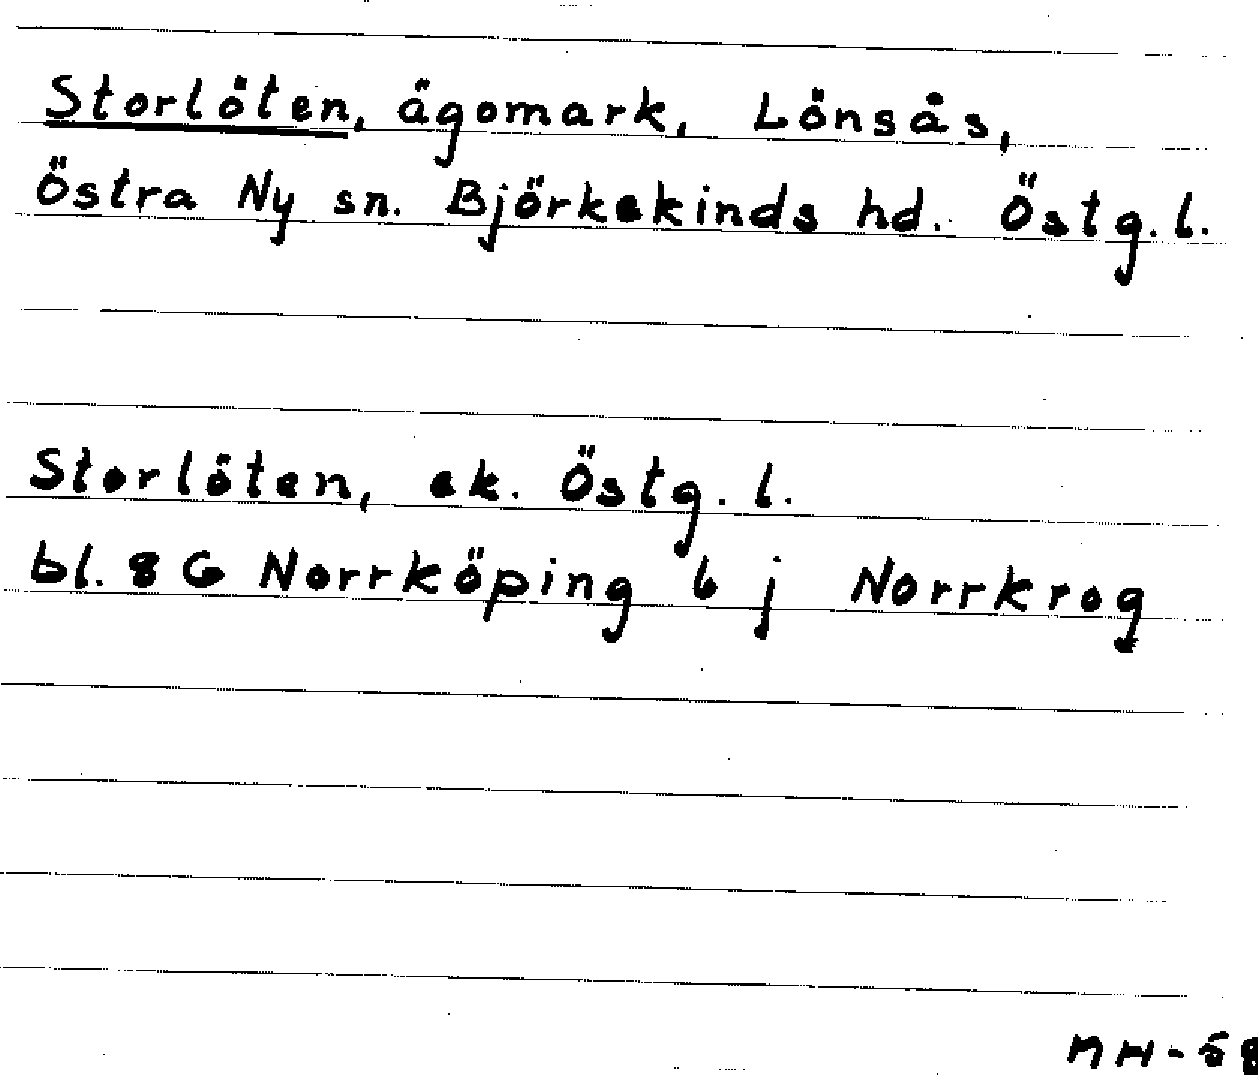 Storlöten, ägomark, Lönsås,
Östra Ny sn. Björkekinds hd. Östg. l.
Storlöten, ek. Östg. l.
bl. 8 G Norrköping 6 j Norrkrog